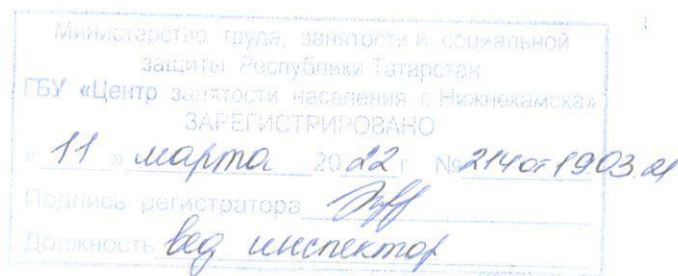 Министерство труда, занятости и социальной
защиты Республики Татарстан
ГБУ «Центр занятости населения г. Нижнекамска»
ЗАРЕГИСТРИРОВАНО
« 11 » марта 2022 г. № 214 от 19.03.21
Подпись регистратора
Должность вед инспектор